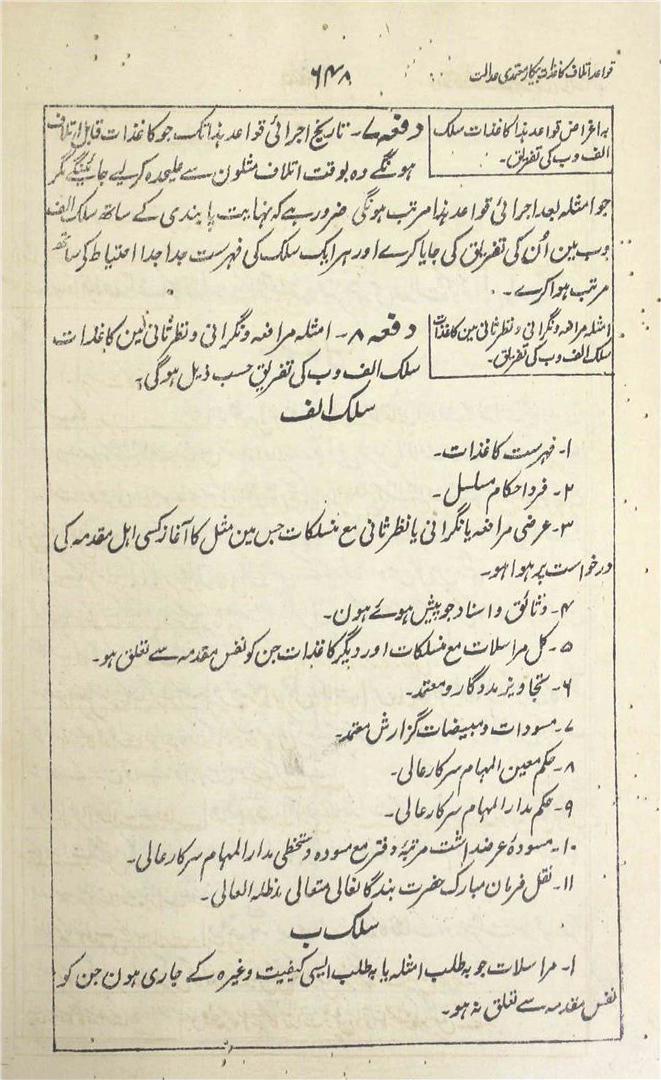 قواعد اتلاف کاغذات بیکار معتمدی عدالت
۶۴۸
بہ اغراض قواعد ہذا کاغذات سلک
الف وب کی تفریق۔
دفعہ ۷۔ تاریخ اجرائی قواعد ہذا تک جو کاغذات قابل اتلاف
ہونگے وہ بوقت اتلاف مثلون سے علیحدہ کرلیے جائینگے مگر
جو امثلہ بعد اجرائی قواعد ہذا مرتب ہونگی ضرور ہے کہ نہایت پابندی کے ساتھ سلک الف
وب مین اُن کی تفریق کی جایا کرے اور ہر ایک سلک کی فہرست جدا جدا احتیاط کے ساتھ
مرتب ہوا کرے۔
امثلہ مرافعہ و نگرانی و نظر ثانی مین کاغذات
سلک الف وب کی تفریق۔
دفعہ ۸۔ امثلہ مرافعہ و نگرانی و نظر ثانی مین کاغذات
سلک الف وب کی تفریق حسب ذیل ہوگی؛
سلک الف
۱۔ فہرست کاغذات۔
۲۔ فرد احکام مسلسل۔
۳۔ عرضی مرافعہ یا نگرانی یا نظر ثانی مع منسلکات جس مین مثل کا آغاز کسی اہل مقدمہ کی
درخواست پر ہوا ہو۔
۴۔ وثائق و اسناد جو پیش ہوے ہون۔
۵۔ کل مراسلات مع منسلکات اور دیگر کاغذات جن کو نفس مقدمہ سے تعلق ہو۔
۶۔ تجاویز مددگار و معتمد۔
۷۔ مسودات و مبیضات گزارش معتمد۔
۸۔ حکم معین المہام سرکار عالی۔
۹۔ حکم مدار المہام سرکار عالی۔
۱۰۔ مسودۂ عرضداشت مرتبۂ دفتر مع مسودہ دستخطی مدار المہام سرکار عالی۔
۱۱۔ نقل فرمان مبارک حضرت بندگانعالی متعالی مدظلہ العالی۔
سلک ب
۱۔ مراسلات جو بہ طلب امثلہ یا بہ طلب ایسی کیفیت وغیرہ کے جاری ہون جن کو
نفس مقدمہ سے تعلق نہ ہو۔